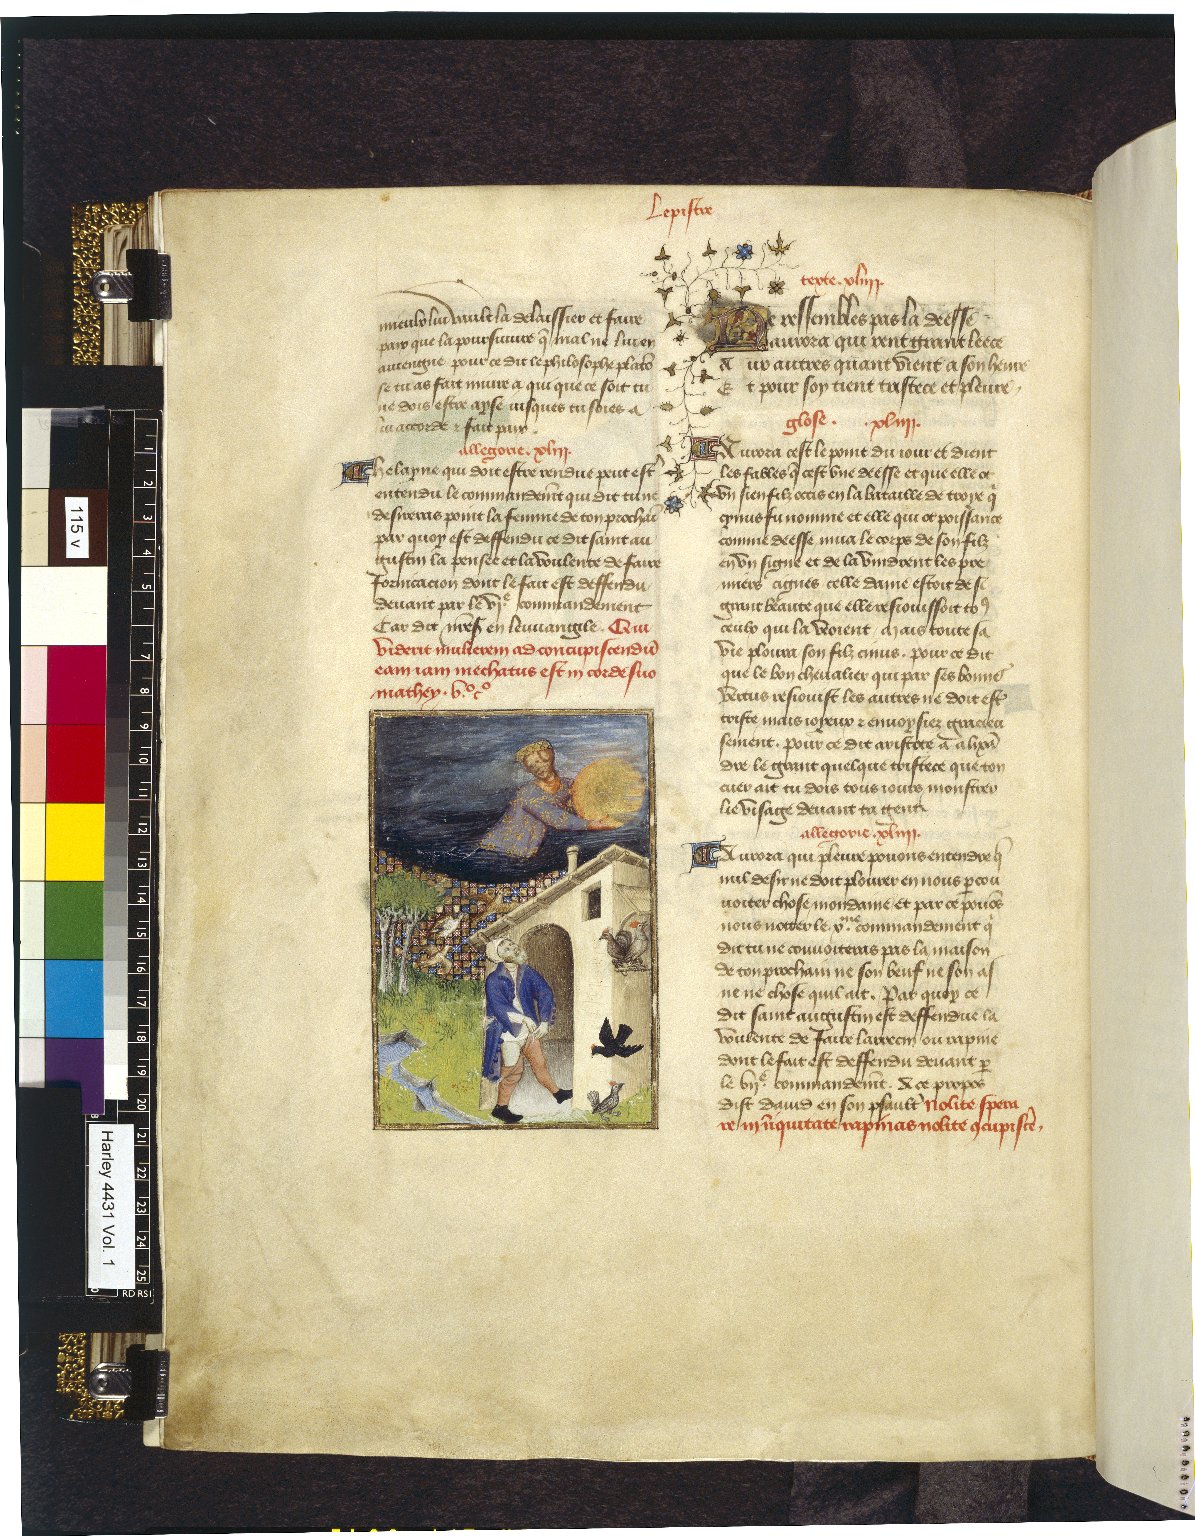 Lepistre
mieulx lui vault la delaissier et faire
paix que la poursuivre q̄ mal ne lui en
auiengne pour ce dit le philosophe platō
se tu as fait iniure a qui que ce soit tu
ne dois estre ayse iusques tu soies a
lui accorde ⁊ fait paix .
allegorie . xliii .
Helayne qui doit estre rendue peut estr̄
entendu le commandemt̄ qui dit tu ne
desireras point la femme de ton prochaī
par quoy est deffendu ce dit saint au
gustin la pensee et la voulente de faire
fornicacion dont le fait est deffendu
deuant par le vjᵉ commandement
Car dit in leuuangile . Qui
viderit mulierem ad concupiscendū
eam iam mechatus est in corde suo
mathey . v.º c.º
texte . xliiii .
Ne ressembles pas la deesse
aurora qui rent grant leece
Aux autres quant vient a son heure
Et pour soy tient tristece et pleure ,
glose . . xliiii .
Aurora cest le point du iour et dient
les fables q̄ cest vne deesse et que elle ot
vn sien filz occis en la bataille de troye q̄
cynus fu nomme et elle qui ot poissance
comme deesse mua le corps de son filz
en vn signe et de la vindrent les pre
miers cignes celle dame estoit de si
grant beaute que elle resiouissoit toꝰ
ceulx qui la veoient , mais toute sa
vie ploura son filz cinus . pour ce dit
que le bon cheualier qui par ses bonnes
vertus resiouist les autres ne doit estr̄
triste mais ioyeux ⁊ enuoysiez gracieu
sement . pour ce dit aristote a alixā
dre le grant quelque tristece que ton
cuer ait tu dois tous iours monstrer
lie visage deuant ta gent
allegorie . xliiii .
Aurora qui pleure pouons entendre q̄
nul desir ne doit plourer en nous ꝑ cou
uoiter chose mondaine et par ce pouōs
nous notter le xᵐᵉ commandement q̄
dit tu ne conuoiteras pas la maison
de ton prochain ne son beuf ne son as
ne ne chose quil ait . Par quoy ce
dit saint augustin est deffendue la
voulente de faire larrecin ou rapine
dont le fait est deffendu deuant ꝑ
le vijᵉ commandemt̄ . A ce propos
dist dauid en son psaultr̄ Nolite spera
re in iniquitate rapinas nolite ꝯcupiscēr ,
115 v
Harley 4431 Vol. 1
1
2
3
4
5
7
8
9
10
12
13
14
15
16
17
18
19
20
21
22
23
24
25
RD RSI